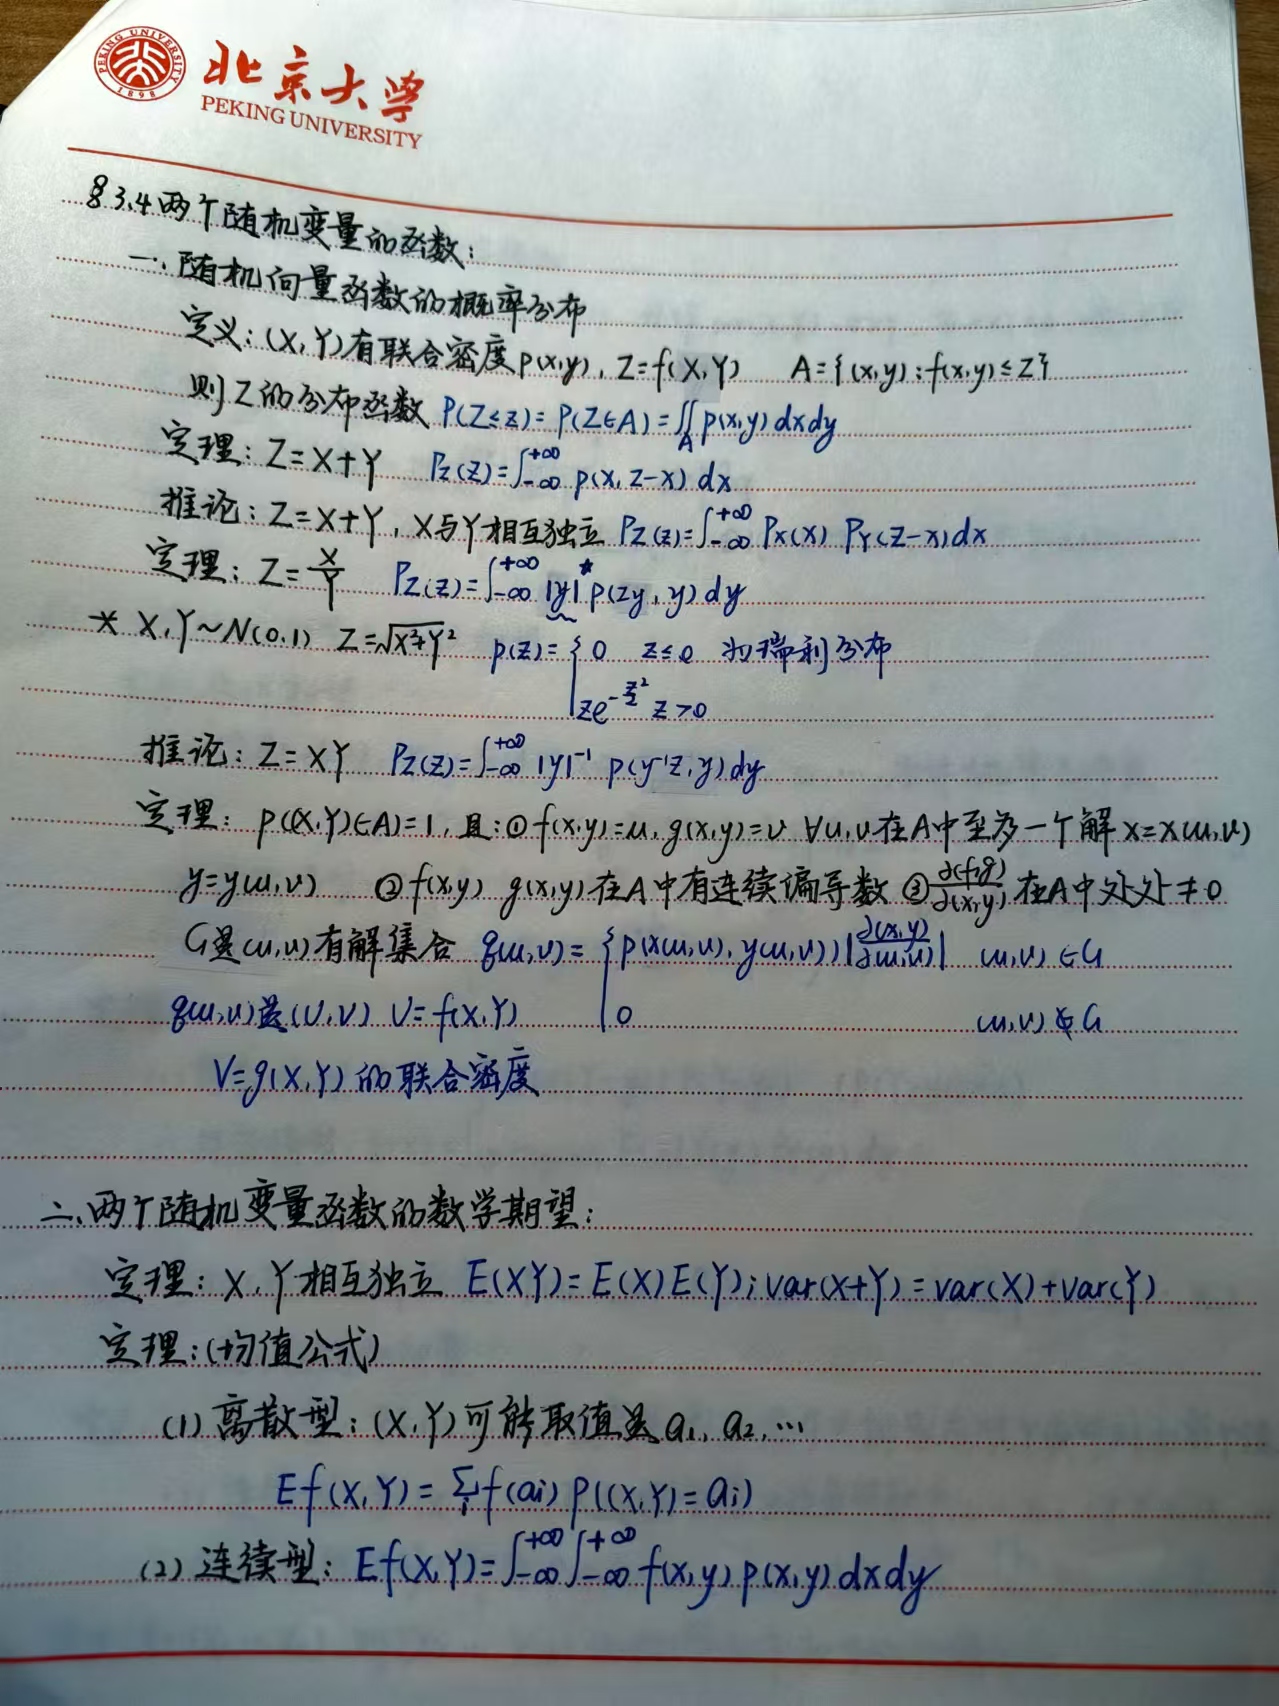 PEKING UNIVERSITY
1898
北京大学
PEKING UNIVERSITY
§3.4 两个随机变量的函数:
一、随机向量函数的概率分布
定义:(X,Y)有联合密度p(x,y),Z=f(X,Y) A={(x,y):f(x,y)≤Z}
则Z的分布函数 P(Z≤z)=P(Z∈A)=∬_A p(x,y)dxdy
定理:Z=X+Y P_Z(Z)=∫_{-∞}^{+∞} p(x,z-x)dx
推论:Z=X+Y,X与Y相互独立 P_Z(z)=∫_{-∞}^{+∞} P_X(x) P_Y(z-x)dx
定理:Z=X/Y P_Z(z)=∫_{-∞}^{+∞} |y|* p(zy,y)dy
* X,Y~N(0,1) Z=√(X²+Y²) p(z)={0 z≤0 为瑞利分布
ze^{-z²/2} z>0
推论:Z=XY P_Z(z)=∫_{-∞}^{+∞} |y|⁻¹ p(y⁻¹z,y)dy
定理:p((X,Y)∈A)=1,且:①f(x,y)=u,g(x,y)=v ∀u,v在A中至多一个解 x=x(u,v)
y=y(u,v) ②f(x,y) g(x,y)在A中有连续偏导数 ③∂(f,g)/∂(x,y)在A中处处≠0
G是(u,v)有解集合 q(u,v)={p(x(u,v),y(u,v))|∂(x,y)/∂(u,v)| (u,v)∈G
q(u,v)是(U,V) U=f(X,Y) 0 (u,v)∉G
V=g(X,Y)的联合密度
二、两个随机变量函数的数学期望:
定理:X,Y相互独立 E(XY)=E(X)E(Y);var(X+Y)=var(X)+var(Y)
定理:(均值公式)
(1)离散型:(X,Y)可能取值是a₁,a₂,…
Ef(X,Y)=∑_i f(ai)P((X,Y)=ai)
(2)连续型:Ef(X,Y)=∫_{-∞}^{+∞}∫_{-∞}^{+∞} f(x,y)p(x,y)dxdy